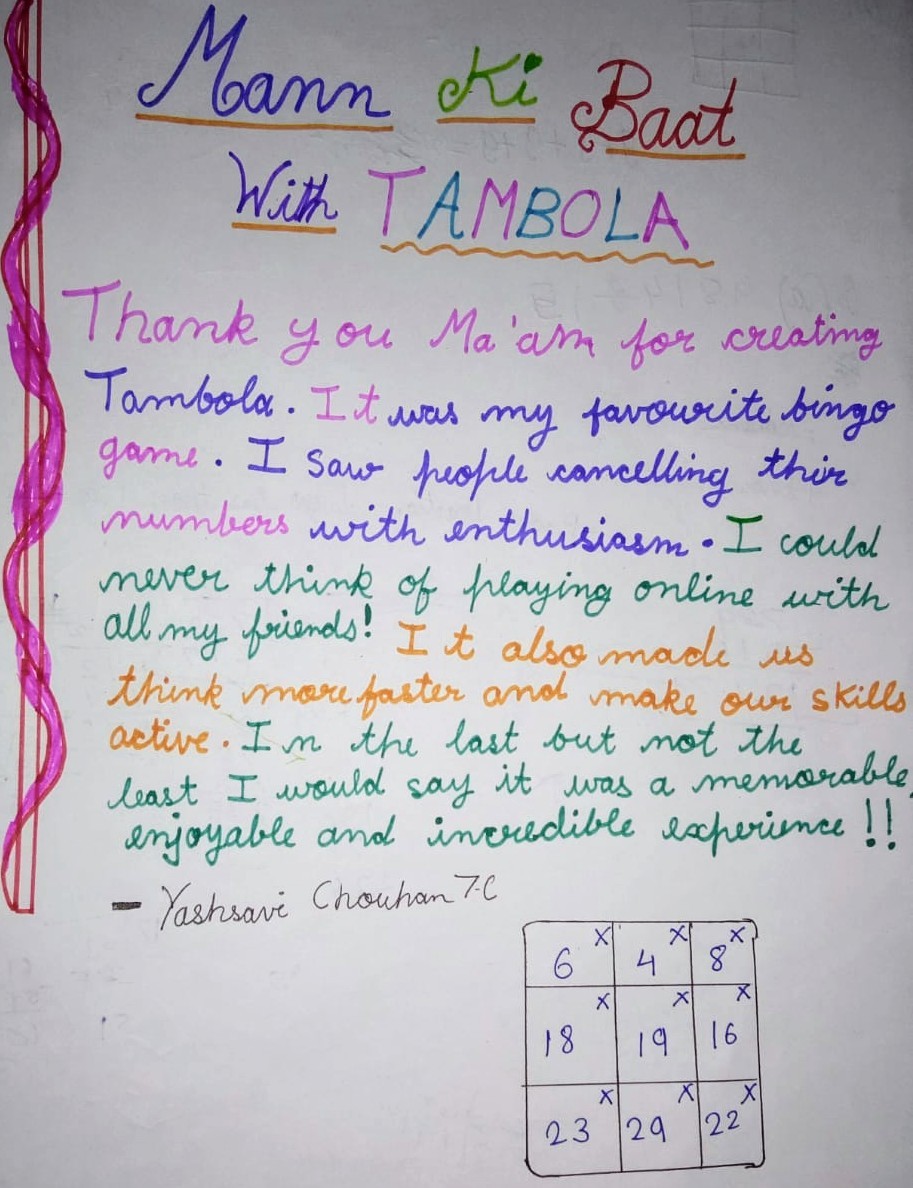 Mann Ki Baat
With TAMBOLA
Thank you Ma'am for creating
Tambola. It was my favourite bingo
game. I saw people cancelling thir
numbers with enthusiasm. I could
never think of playing online with
all my friends! It also made us
think more faster and make our skills
active. In the last but not the
least I would say it was a memorable,
enjoyable and incredible experience!!
- Yashsavi Chouhan 7-C
6 x 4 x 8 x
18 x 19 x 16 x
23 x 29 x 22 x